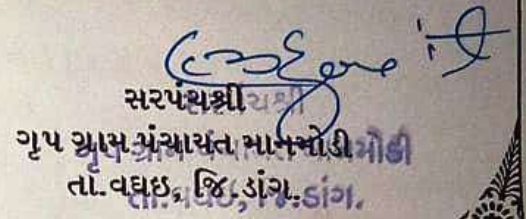 સરપંચશ્રી
ગૃપ ગ્રામ પંચાયત માનમોડી
તા.વઘઇ, જિ.ડાંગ.